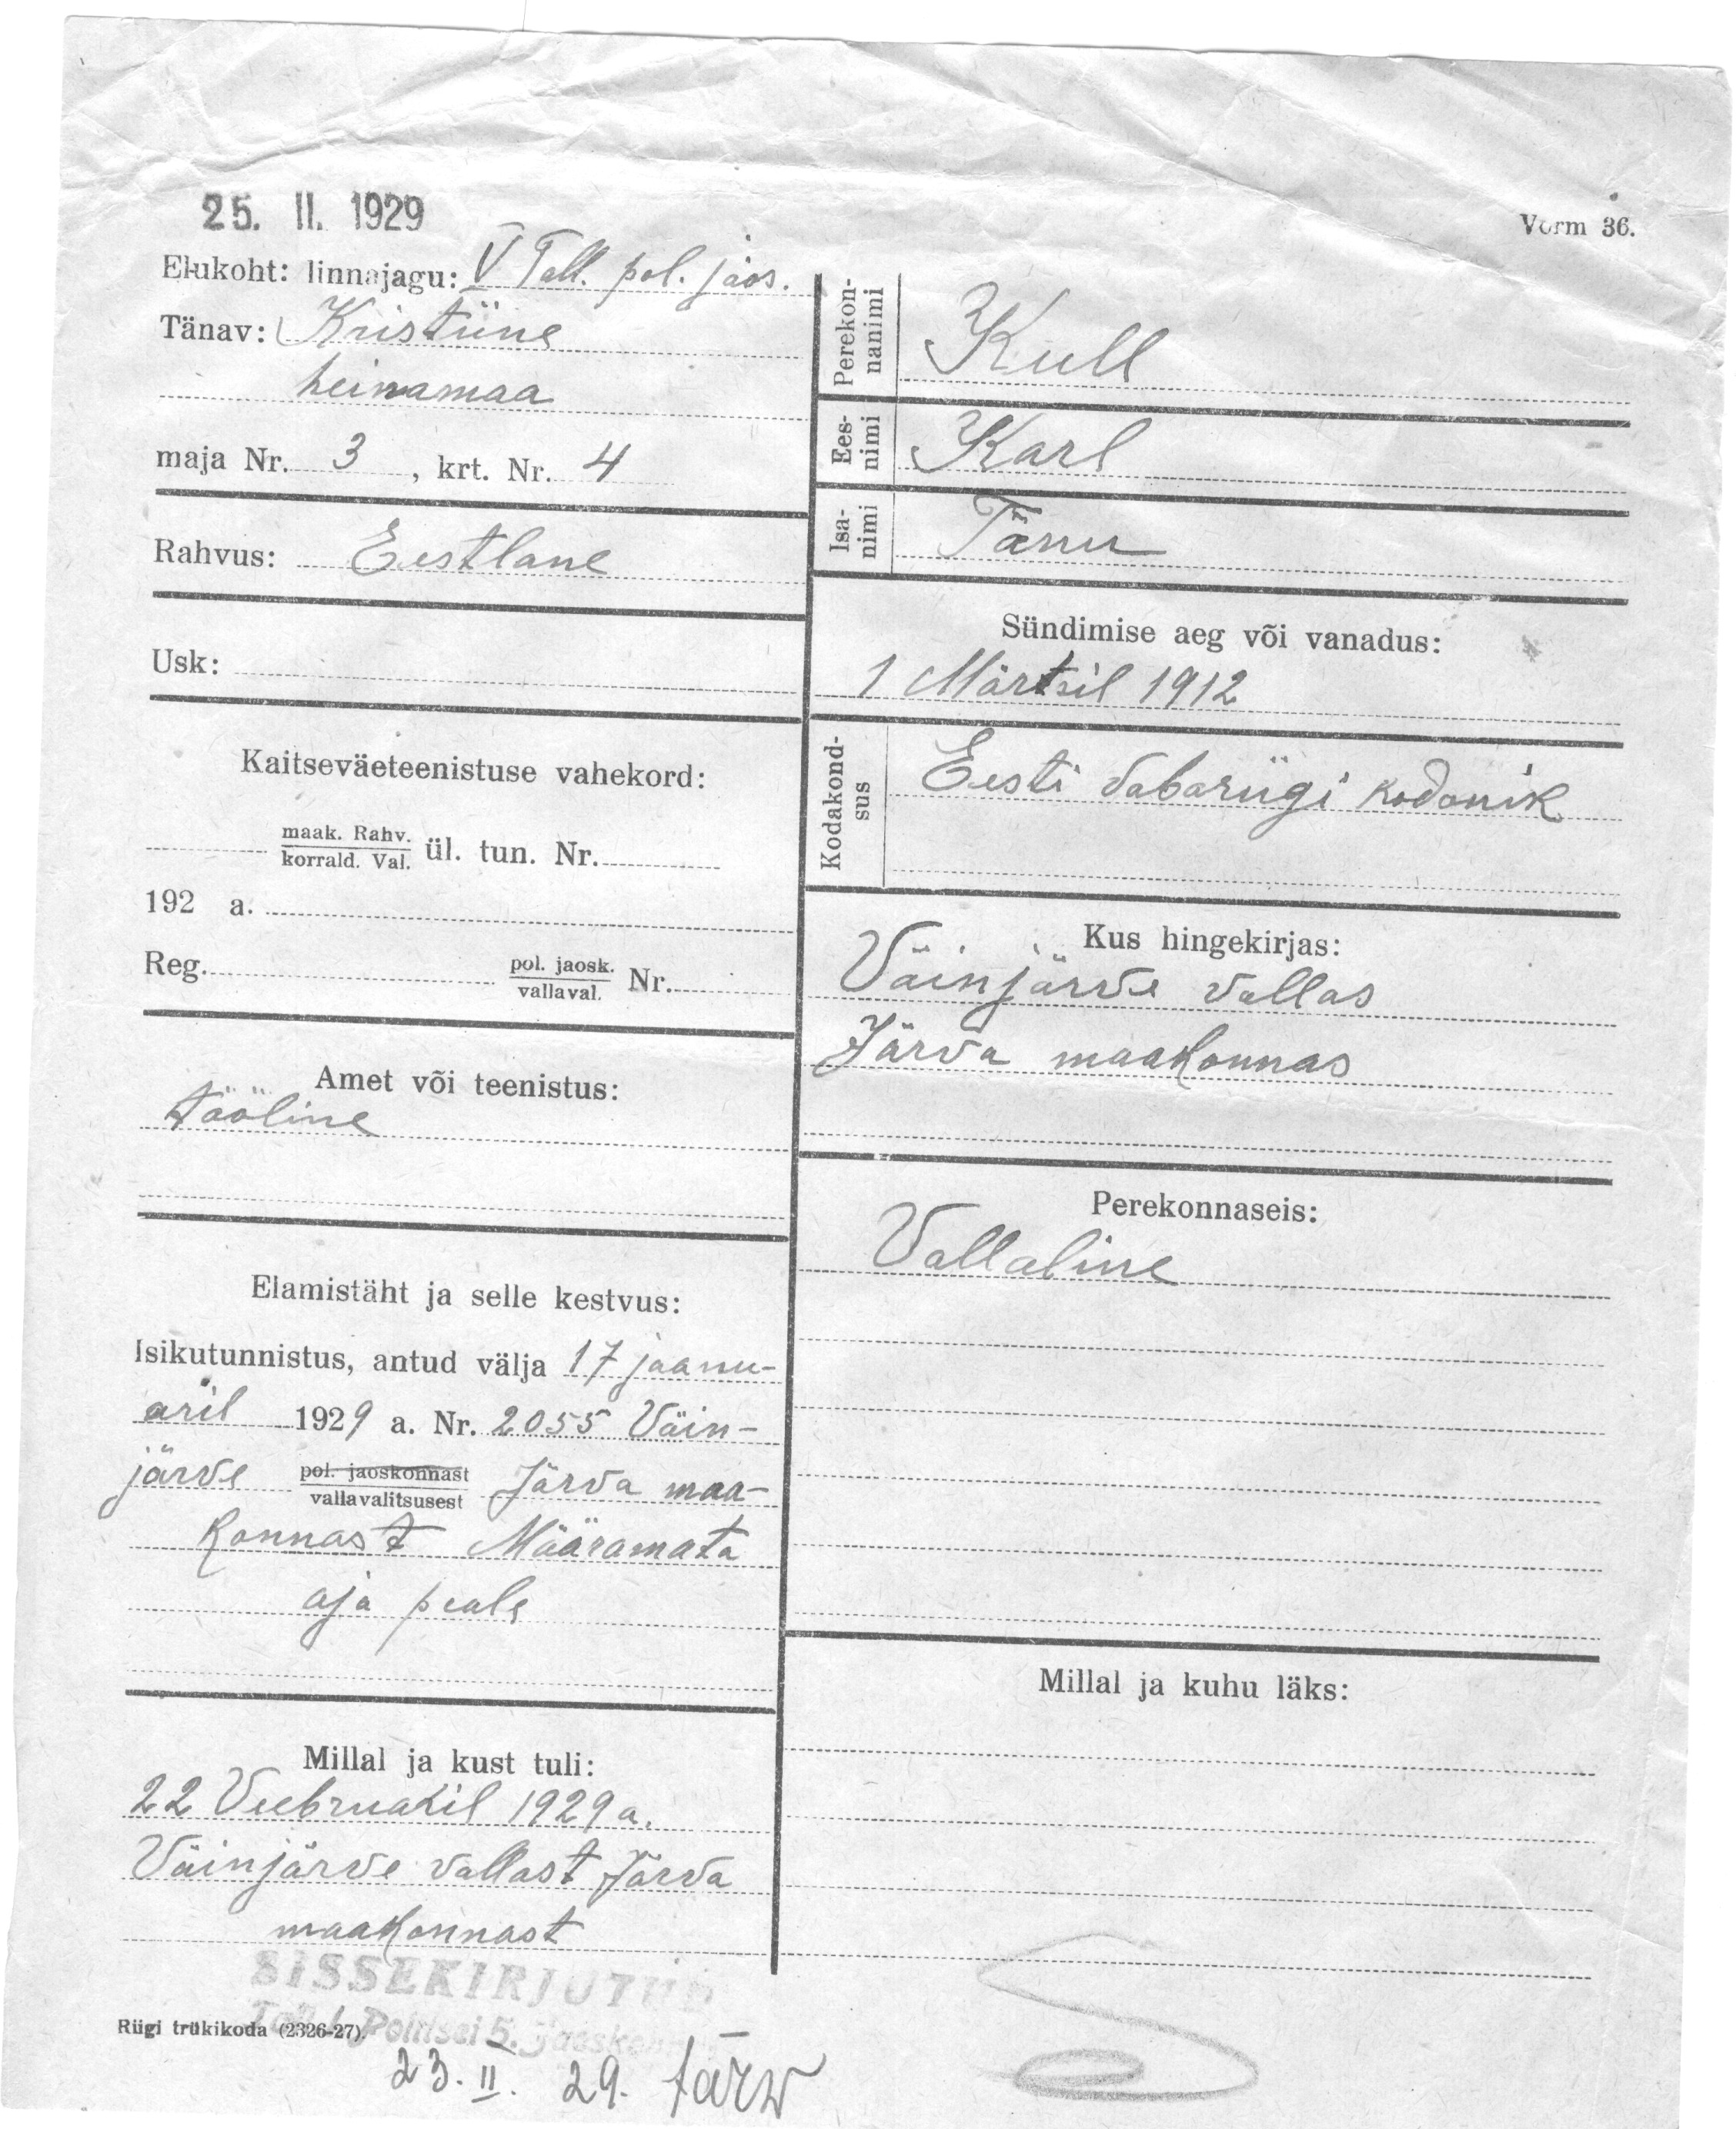 25. II. 1929
Vorm 36.
Elukoht: linnajagu: V Tall. pol. jaos.
Tänav: Kristiine
heinamaa
maja Nr. 3, krt. Nr. 4
Rahvus: Eestlane
Usk:
Kaitseväeteenistuse vahekord:
maak. Rahv.
korrald. Val. ül. tun. Nr.
192 a.
Reg. pol. jaosk.
vallaval. Nr.
Amet või teenistus:
tööline
Elamistäht ja selle kestvus:
Isikutunnistus, antud välja 17 jaanu-
aril 1929 a. Nr. 2055 Väin-
järve pol. jaoskonnast
vallavalitsusest Järva maa-
konnast Määramata
aja peale
Millal ja kust tuli:
22 Veebruaril 1929 a.
Väinjärve vallast Järva
maakonnast
Perekon-
nanimi
Kull
Ees-
nimi
Karl
Isa-
nimi
Tänu
Sündimise aeg või vanadus:
1 Märtsil 1912
Kodakond-
sus
Eesti Vabariigi kodanik
Kus hingekirjas:
Väinjärve vallas
Järva maakonnas
Perekonnaseis:
Vallaline
Millal ja kuhu läks:
SISSEKIRJUTUD
Politsei 5. Jaoskon
Riigi trükikoda (2326-27).
23. II. 29.